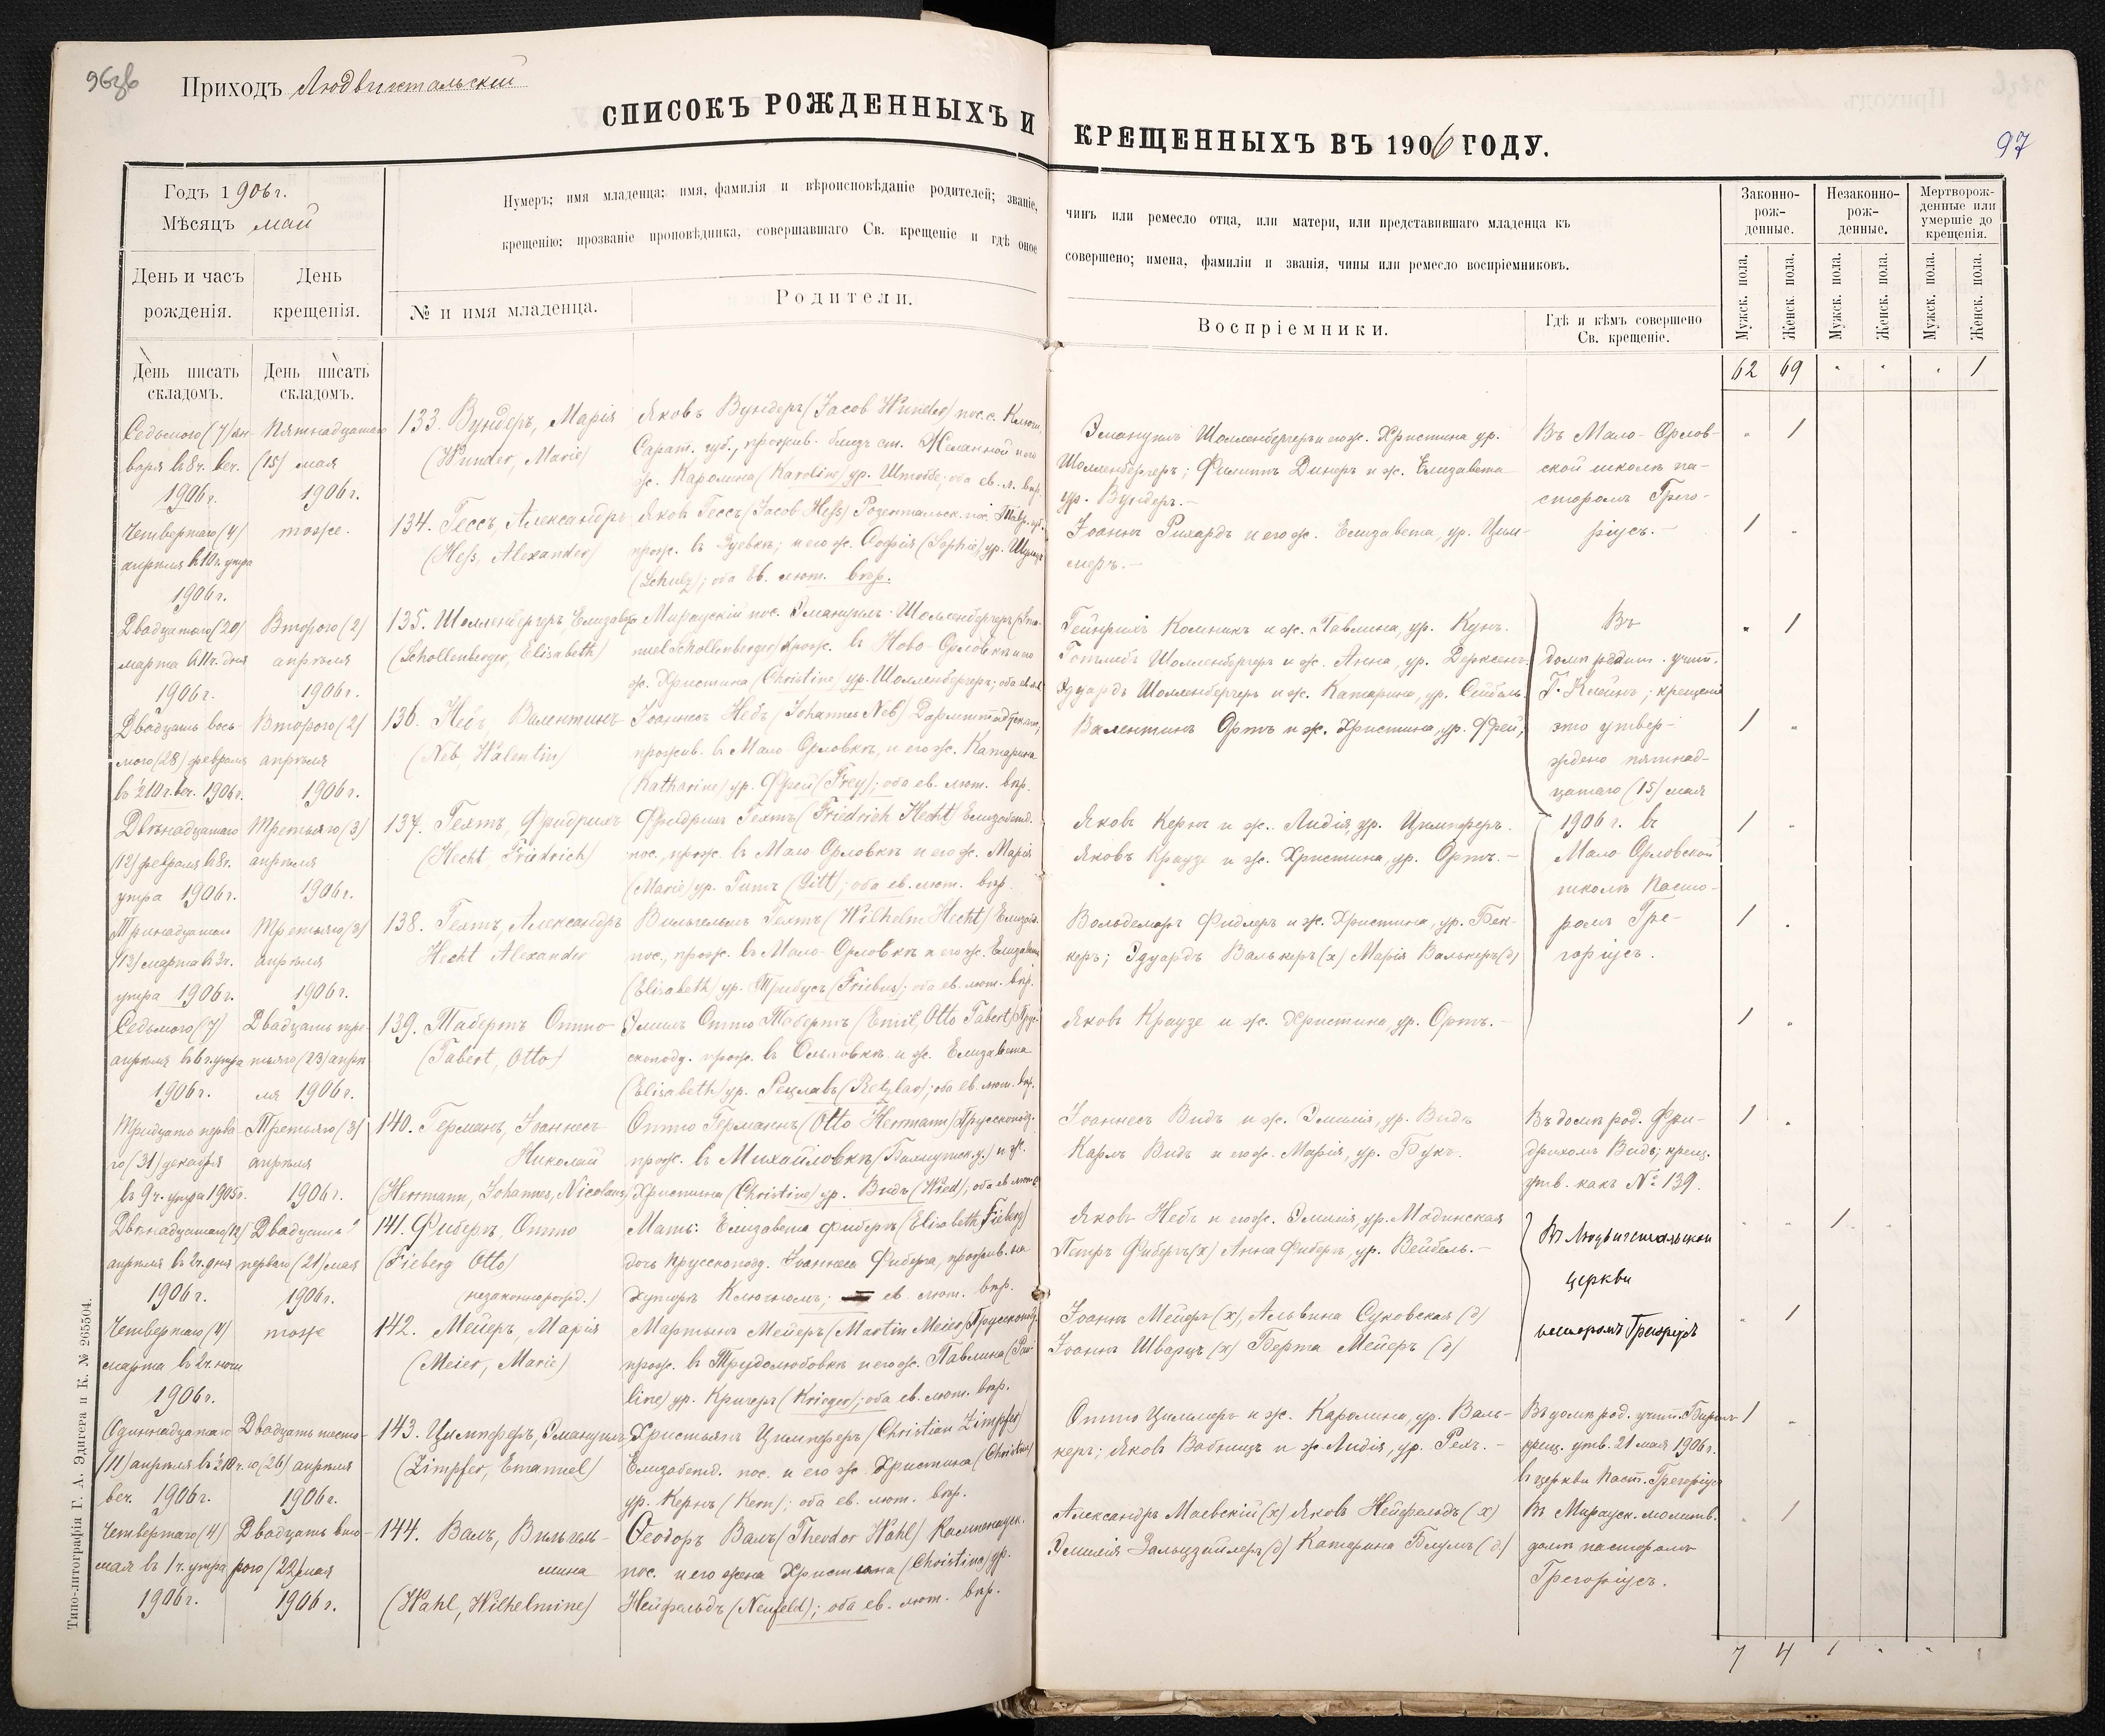 96об
Приходъ Людвигстальскій
СПИСОКЪ РОЖДЕННЫХЪ И КРЕЩЕННЫХЪ ВЪ 1906 ГОДУ.
97
Годъ 1906 г.
Мѣсяцъ май
Нумеръ; имя младенца; имя, фамилія и вѣроисповѣданіе родителей; званіе, чинъ или ремесло отца, или матери, или представившаго младенца къ
крещенію; прозваніе проповѣдника, совершавшаго Св. крещеніе и гдѣ оное совершено; имена, фамиліи и званія, чины или ремесло воспріемниковъ.
День и часъ рожденія.
День крещенія.
№ и имя младенца.
Родители.
Воспріемники.
Гдѣ и кѣмъ совершено
Св. крещеніе.
Законно-
рож-
денные.
Незаконно-
рож-
денные.
Мертворож-
денные или
умершіе до
крещенія.
Мужск. пола.
Женск. пола.
Мужск. пола.
Женск. пола.
Мужск. пола.
Женск. пола.
День писать
складомъ.
День писать
складомъ.
62 69 " " " 1
Седьмого (7) ян-
варя в 8 ч. веч.
1906 г.
Пятнадцатаго
(15) мая
1906 г.
133. Вундеръ, Марія
(Wunder, Marie)
Яковъ Вундеръ (Jacob Wunder) пос. с.
Сарат. губ., прожив. близъ ст. Желанной и его
ж. Каролина (Karoline) ур. Штоббе; оба ев. л. вѣр.
Эмануилъ Шолленбергеръ и его ж. Христина ур.
Шолленбергеръ; Филиппъ Динеръ и ж. Елизавета
ур. Вундеръ.-
Въ Мало-Орлов-
ской школѣ па-
сторомъ Грего-
ріусъ.-
" 1
Четвертаго (4)
апрѣля в 10 ч. утра
1906 г.
тоже.
134. Гессъ, Александръ
(Heß, Alexander)
Яковъ Гессъ (Jacob Heß) Розентальск. пос. Тавр. губ.
прож. въ Зуевкѣ; и его ж. Софія (Sophie) ур. Шульцъ
(Schulz); оба ев. лют. вѣр.
Іоаннъ Рихардъ и его ж. Елизавета, ур. Цим-
меръ.-
1 "
Двадцатаго (20)
марта в 11 ч. дня
1906 г.
Второго (2)
апрѣля
1906 г.
135. Шолленбергеръ, Елизавета
(Schollenberger, Elisabeth)
Мирауcкій пос. Эмануилъ Шолленбергеръ (Ema-
nuel Schollenberger) прож. въ Ново-Орловкѣ и его
ж. Христина (Christine) ур. Шолленбергеръ; оба ев. л.
Гейнрихъ Колникъ и ж. Павлина, ур. Кунъ.
Готлибъ Шолленбергеръ и ж. Анна, ур. Дерксенъ.
Эдуардъ Шолленбергеръ и ж. Катарина, ур. Сейбель.
Въ
домѣ родит. учит.
Г. Клейнъ; крещеніе
это утвер-
ждено пятнад-
цатаго (15) мая
1906 г. въ
Мало-Орловской
школѣ Пасто-
ромъ Гре-
горіусъ.
" 1
Двадцать вось-
мого (28) февраля
въ ½10 ч. веч. 1906 г.
Второго (2)
апрѣля
1906 г.
136. Небъ Валентинъ
(Neb, Walentin)
Іоаннесъ Небъ (Johannes Neb) Дармштадтск. пос.,
прожив. въ Мало-Орловкѣ, и его ж. Катарина
(Katharine) ур. Фрей (Frey); оба ев. лют. вѣр.
Валентинъ Ортъ и ж. Христина, ур. Фрей;
1 "
Двѣнадцатаго
(12) февраля в 8 ч.
утра 1906 г.
Третьяго (3)
апрѣля
1906 г.
137. Гехтъ, Фридрихъ
(Hecht, Friedrich)
Фридрихъ Гехтъ (Friedrich Hecht) Елизабетд.
пос., прож. въ Мало-Орловкѣ и его ж. Марія
(Marie) ур. Гитт (Gitt); оба ев. лют. вѣр.
Яковъ Кернъ и ж. Лидія, ур. Цимпферъ.
Яковъ Краузе и ж. Христина, ур. Ортъ.-
1 "
Тринадцатаго
(13) марта в 3 ч.
утра 1906 г.
Третьяго (3)
апрѣля
1906 г.
138. Гехтъ, Александръ
Hecht Alexander
Вильгельмъ Гехтъ (Wilhelm Hecht) Елизаб.
пос., прож. въ Мало-Орловкѣ и его ж. Елизавета
(Elisabeth) ур. Трибусъ (Triebus); оба ев. лют. вѣр.
Вольдемаръ Фидлеръ и ж. Христина, ур. Бек-
керъ; Эдуардъ Валькеръ (х) Марія Валькеръ (д)
1 "
Седьмого (7)
апрѣля в 6 ч. утра
1906 г.
Двадцать тре-
тьяго (23) апрѣ-
ля 1906 г.
139. Табертъ Отто
(Tabert, Otto)
Эмиль Отто Табертъ (Emil, Otto Tabert) Прус-
скопод. прож. въ Ольховкѣ и ж. Елизавета
(Elisabeth) ур. Рецлавъ (Retzlav); оба ев. лют. вѣр.
Яковъ Краузе и ж. Христина, ур. Ортъ.-
1 "
Тридцать перва-
го (31) декабря
въ 9 ч. утра 1905 г.
Третьяго (3)
апрѣля
1906 г.
140. Германъ, Іоаннесъ
Николай
(Herrmann, Johannes, Nicolaus)
Отто Германнъ (Otto Herrmann) Прусскопод.
прож. въ Михайловкѣ (Бахмутск. у.) и ж.
Христина (Christine) ур. Видъ (Wied), оба ев. лют. в.
Іоаннесъ Видъ и ж. Эмилія, ур. Видъ
Карлъ Видъ и его ж. Марія, ур. Букъ.
Въ домѣ род. Фри-
дрихомъ Видъ; крещ.
утв. какъ № 139.
1 "
Двѣнадцатаго (12)
апрѣля въ 2 ч. дня
1906 г.
Двадцать
перваго (21) мая
1906 г.
141. Фибергъ, Отто
(Fieberg Otto)
(незаконнорожд.)
Мать: Елизавета Фибергъ (Elisabeth Fieberg)
дочь прусскопод. Іоаннеса Фиберга, прожив. на
хуторѣ; ев. лют. вѣр.
Яковъ Небъ и его ж. Эмилія, ур. Модинская
Петръ Фибергъ (х) Анна Фибергъ, ур. Вейбель.-
Въ Людвигстальской
церкви
пасторомъ Грегоріусъ
" " 1 "
Четвертаго (4)
марта въ 2 ч. ночи
1906 г.
тоже
142. Мейеръ, Марія
(Meier, Marie)
Мартынъ Мейеръ (Martin Meier) Прусскопод.
прож. въ Трудолюбовкѣ и его ж. Павлина (Pau-
line) ур. Кригеръ (Krieger); оба ев. лют. вѣр.
Іоаннъ Мейеръ (х), Альвина Суковская (д)
Іоаннъ Шварцъ (х) Берта Мейеръ (д)
" 1
Одиннадцатаго
(11) апрѣля въ ½10 ч.
веч. 1906 г.
Двадцать шесто-
го (26) апрѣля
1906 г.
143. Цимпферъ, Эмануилъ
(Zimpfer, Emanuel)
Христьянъ Цимпферъ (Christian Zimpfer)
Елизабетд. пос. и его ж. Христина (Christine)
ур. Кернъ (Kern); оба ев. лют. вѣр.
Отто Циммеръ и ж. Каролина, ур. Валь-
керъ; Яковъ Вобницъ и ж. Лидія, ур. Рехъ.-
Въ домѣ род. учит.
крещ. утв. 21 мая 1906 г.
въ церкви Паст. Грегоріусъ
1 "
Четвертаго (4)
мая въ 1 ч. утра
1906 г.
Двадцать вто-
рого (22) мая
1906 г.
144. Валъ, Вильгель-
мина
(Wahl, Wilhelmine)
Ѳеодоръ Валъ (Theodor Wahl)
пос. и его жена Христина (Christine) ур.
Нейфельдъ (Neufeld); оба ев. лют. вѣр.
Александръ Маевскій (х) Яковъ Нейфельдъ (х)
Эмилія Зальцзайлеръ (д) Катарина Блумъ (д)
Въ Мирауск. молитв.
домѣ пасторомъ
Грегоріусъ.
" 1
7 4 1 " " 1
Типо-литографія Г. А. Эдигера и К. № 265504.